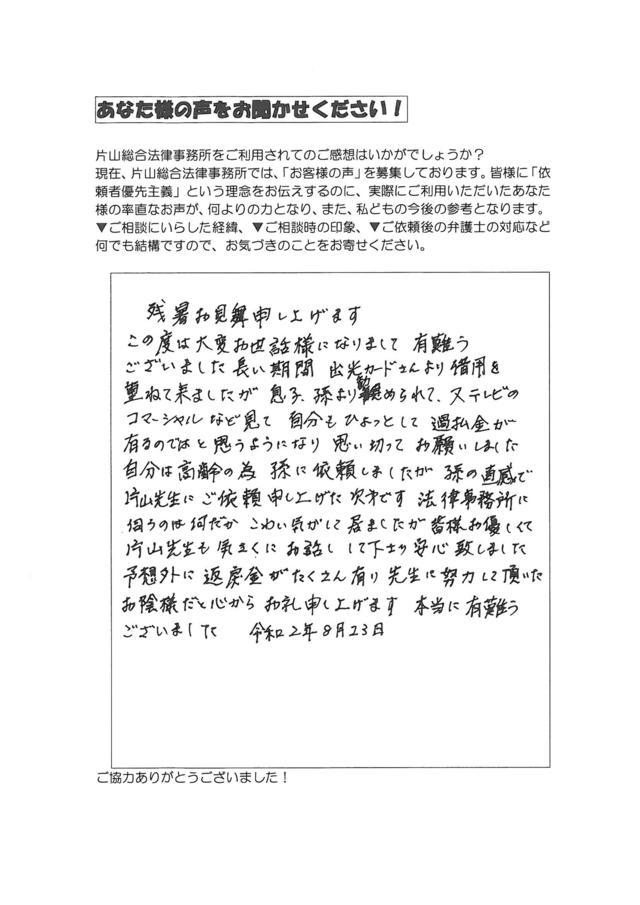 あなた様の声をお聞かせください！
片山総合法律事務所をご利用されてのご感想はいかがでしょうか？
現在、片山総合法律事務所では、「お客様の声」を募集しております。皆様に「依
頼者優先主義」という理念をお伝えするのに、実際にご利用いただいたあなた
様の率直なお声が、何よりの力となり、また、私どもの今後の参考となります。
▼ご相談にいらした経緯、▼ご相談時の印象、▼ご依頼後の弁護士の対応など
何でも結構ですので、お気づきのことをお寄せください。
残暑お見舞申し上げます
この度は大変お世話様になりまして 有難う
ございました 長い期間 出光カードさんより借用を
重ねて来ましたが 息子、孫より勧められて、又テレビの
コマーシャルなど見て 自分もひょっとして 過払金が
有るのではと思うようになり 思い切って お願いしました
自分は高齢の為 孫に依頼しましたが 孫の直感で
片山先生にご依頼申し上げた次才です 法律事務所に
伺うのは何だか こわい気がして居ましたが 皆様お優しくて
片山先生も気さくにお話しして下さり安心致しました
予想外に返戻金がたくさん有り 先生に努力して頂いた
お陰様だと心から お礼申し上げます 本当に有難う
ございました 令和2年8月23日
ご協力ありがとうございました！